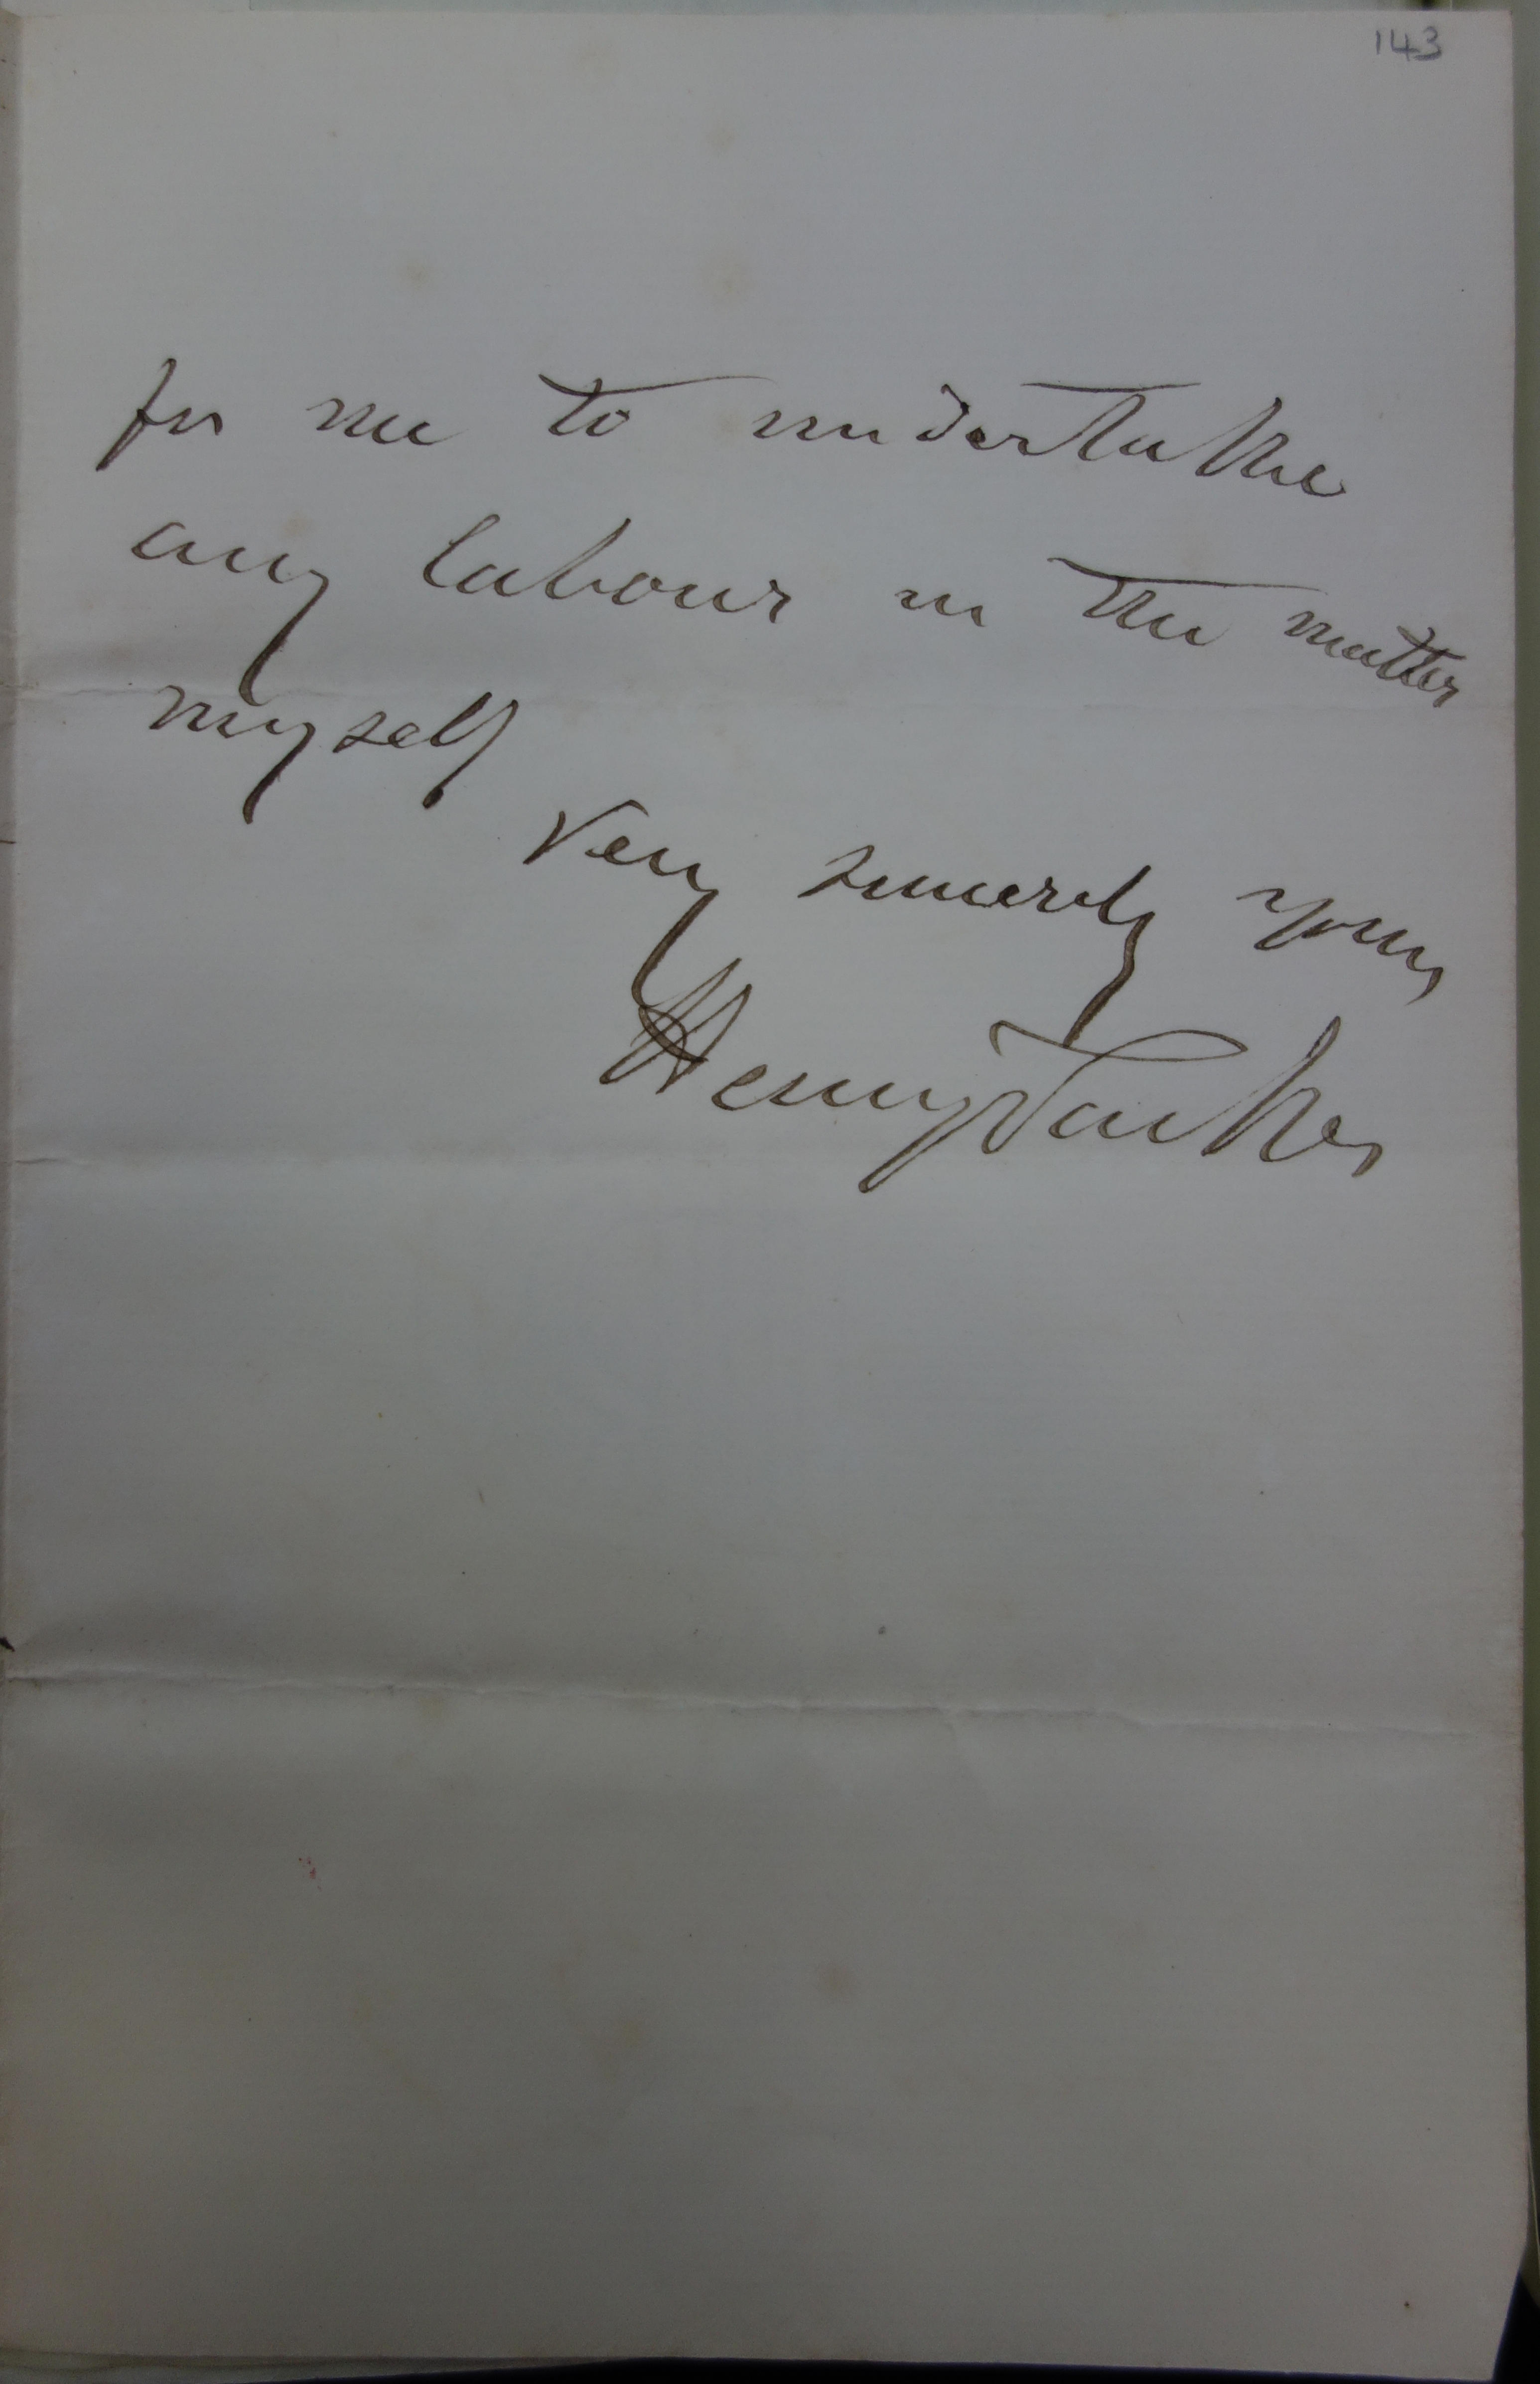 143
for me to undertake
any labour in the matter
myself
Very sincerely yours
Henry Parkes